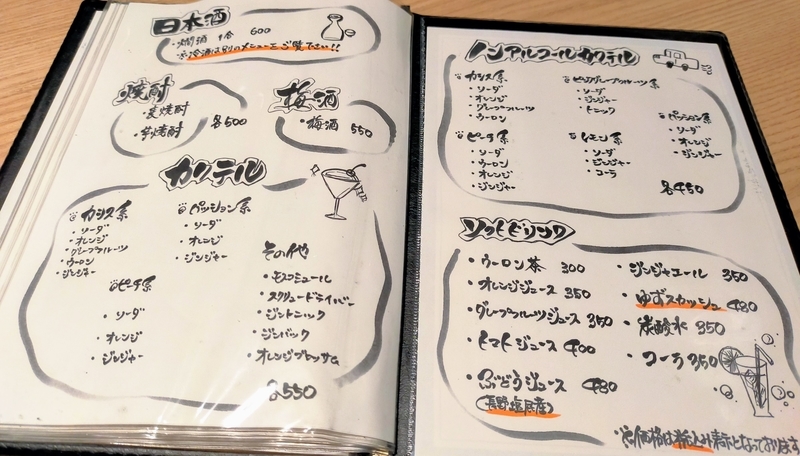 日本酒
・燗酒 1合 600
※冷酒は別のメニューをご覧下さい!!
焼酎
・麦焼酎
・芋焼酎
各500
梅酒
・梅酒 550
カクテル
カシス系
・ソーダ
・オレンジ
・グレープフルーツ
・ウーロン
・ジンジャー
パッション系
・ソーダ
・オレンジ
・ジンジャー
ピーチ系
・ソーダ
・オレンジ
・ジンジャー
その他
・モスコミュール
・スクリュードライバー
・ジントニック
・ジンバック
・オレンジブロッサム
各550
ノンアルコールカクテル
カシス系
・ソーダ
・オレンジ
・グレープフルーツ
・ウーロン
ピンクグレープフルーツ系
・ソーダ
・ジンジャー
・トニック
パッション系
・ソーダ
・オレンジ
・ジンジャー
ピーチ系
・ソーダ
・ウーロン
・オレンジ
・ジンジャー
レモン系
・ソーダ
・ジンジャー
・コーラ
各450
ソフトドリンク
・ウーロン茶 300
・オレンジジュース 350
・グレープフルーツジュース 350
・トマトジュース 400
・ぶどうジュース 480
(長野塩尻産)
・ジンジャエール 350
・ゆずスカッシュ 480
・炭酸水 350
・コーラ 350
※価格は税込み表示となっております